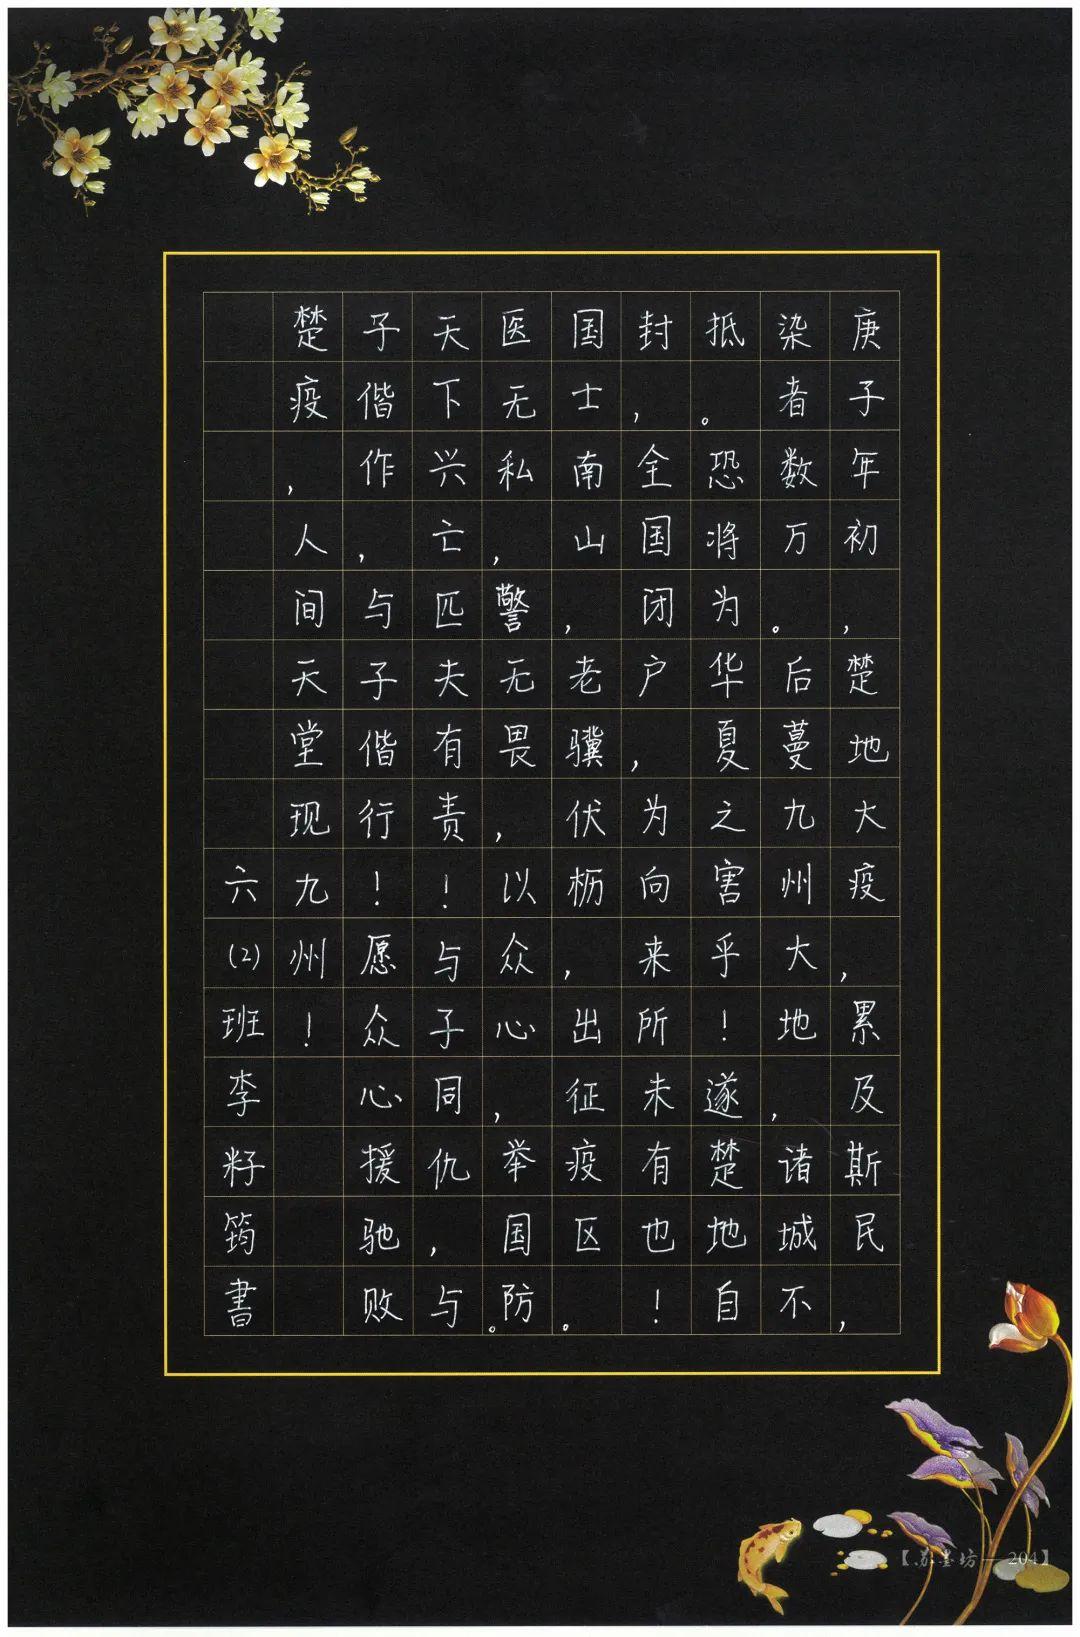 庚子年初，楚地大疫，累及斯民，
染者数万。后蔓九州大地，诸城不
抵。恐将为华夏之害乎！遂楚地自
封，全国闭户，为向来所未有也！
国士南山，老骥伏枥，出征疫区。
医无私，警无畏，以众心，举国防。
天下兴亡匹夫有责！与子同仇，与
子偕作，与子偕行！愿众心援驰败
楚疫，人间天堂现九州！
六(2)班李籽筠書
【苏墨坊—204】